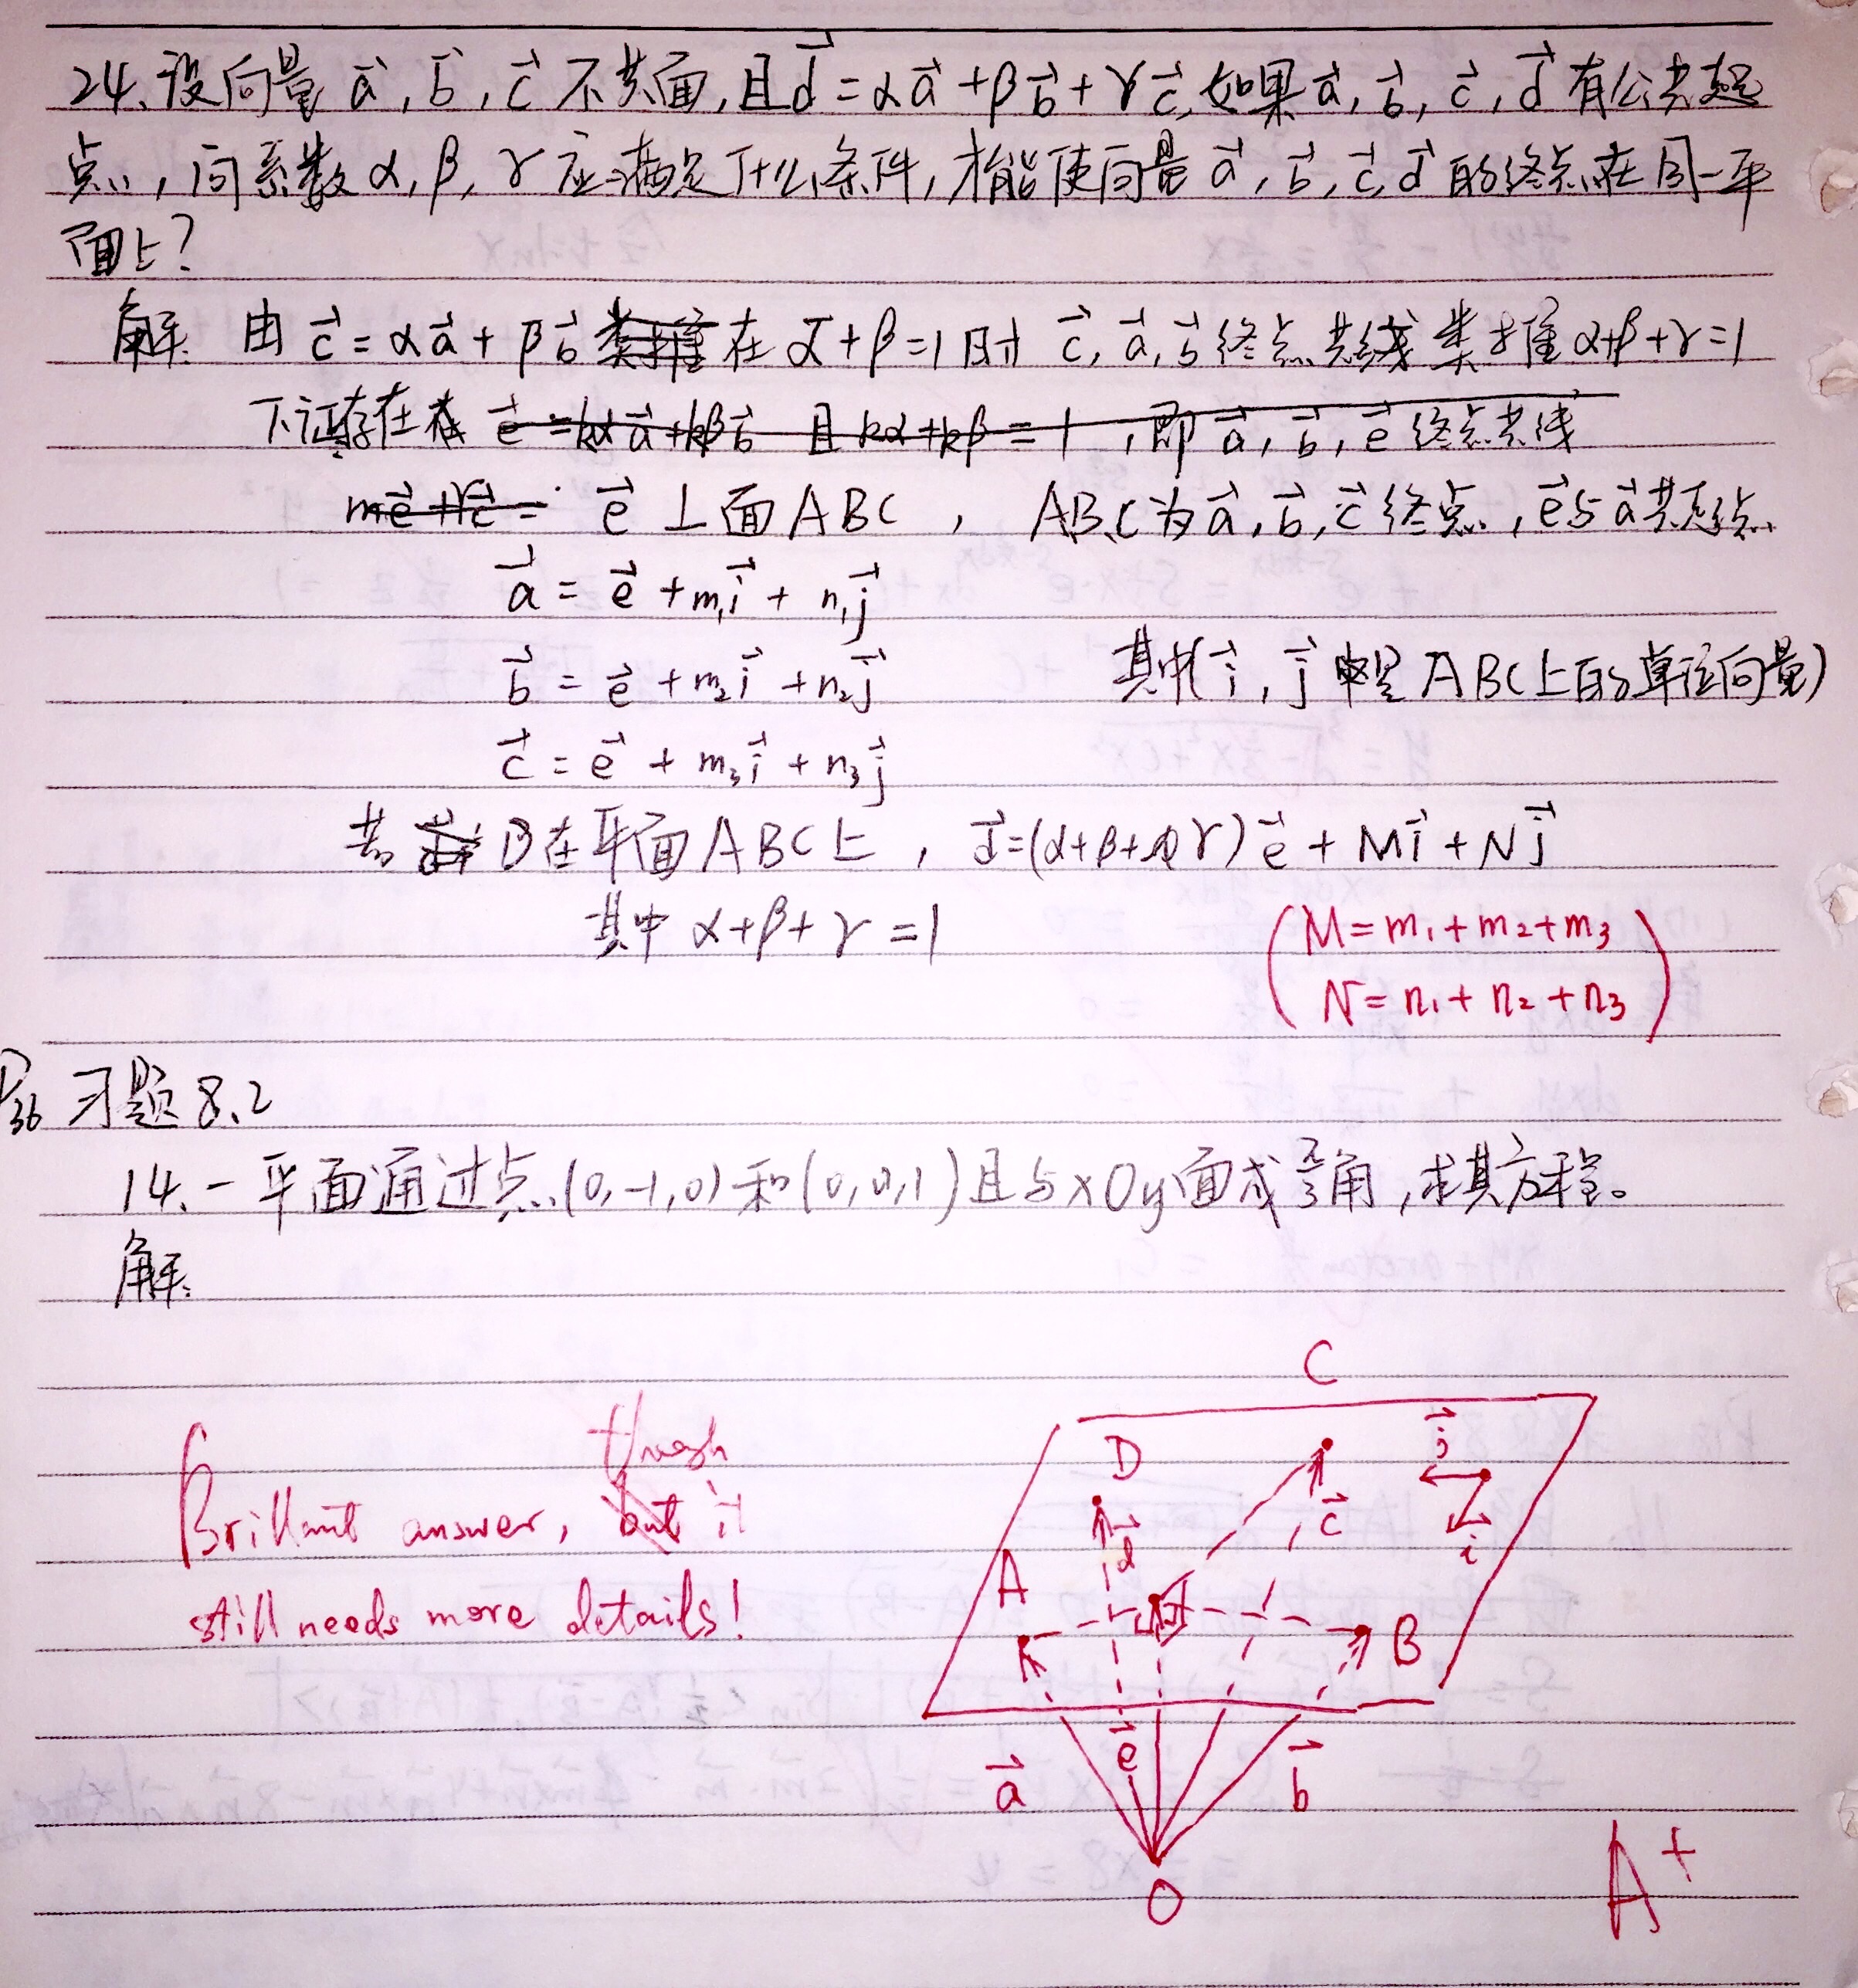 24、设向量 a⃗, b⃗, c⃗ 不共面,且d⃗=αa⃗+βb⃗+γc⃗,如果a⃗, b⃗, c⃗, d⃗有公共起
点,问系数α,β,γ应满足什么条件,才能使向量a⃗, b⃗, c⃗, d⃗的终点在同一平
面上?
解: 由 c⃗=αa⃗+βb⃗ 类推 在 α+β=1时 c⃗, a⃗, b⃗终点共线 类推α+β+γ=1
下证存在 e⃗=kαa⃗+kβb⃗ 且 kα+kβ=1,即a⃗, b⃗, e⃗终点共线
me⃗+γc⃗= e⃗⊥面ABC, A,B,C为a⃗, b⃗, c⃗终点,e⃗与a⃗共起点
a⃗=e⃗+m₁i⃗+n₁j⃗
b⃗=e⃗+m₂i⃗+n₂j⃗ 其中(i⃗, j⃗是ABC上的单位向量)
c⃗=e⃗+m₃i⃗+n₃j⃗
若 D在平面ABC上, d⃗=(α+β+γ)e⃗+Mi⃗+Nj⃗
其中 α+β+γ=1
(M=m₁+m₂+m₃
N=n₁+n₂+n₃)
P36 习题8.2
14、一平面通过点(0,-1,0)和(0,0,1)且与xOy面成π/3角,求其方程。
解:
though
Brillant answer, but it
still needs more details!
C
D
j⃗
c⃗
d⃗
i⃗
A
B
e⃗
a⃗
b⃗
O
A+